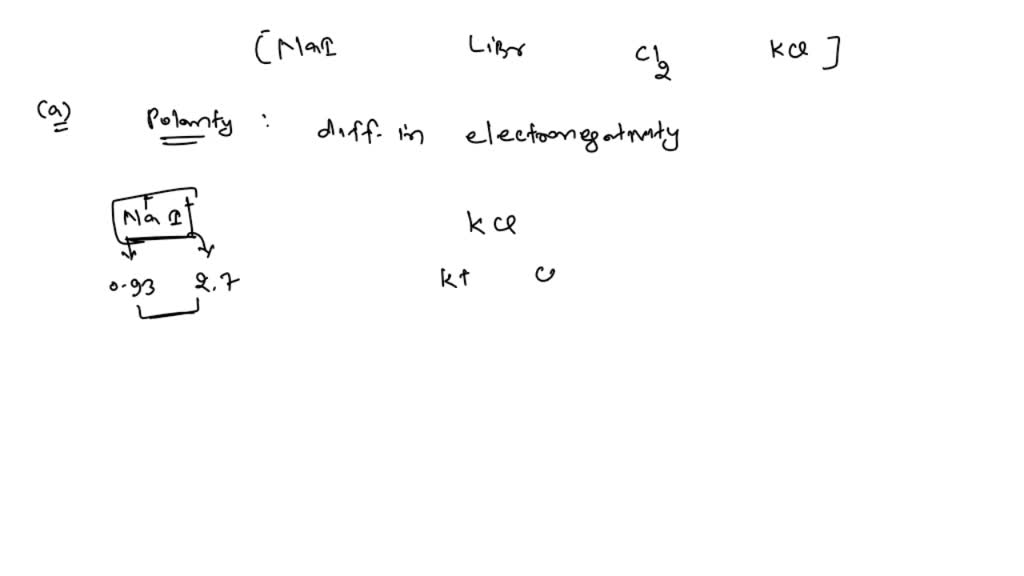 [NaI LiBr Cl2 KCl]
(a) Polarity : diff. in electronegativity
NaI KCl
0.93 2.7 K+ Cl